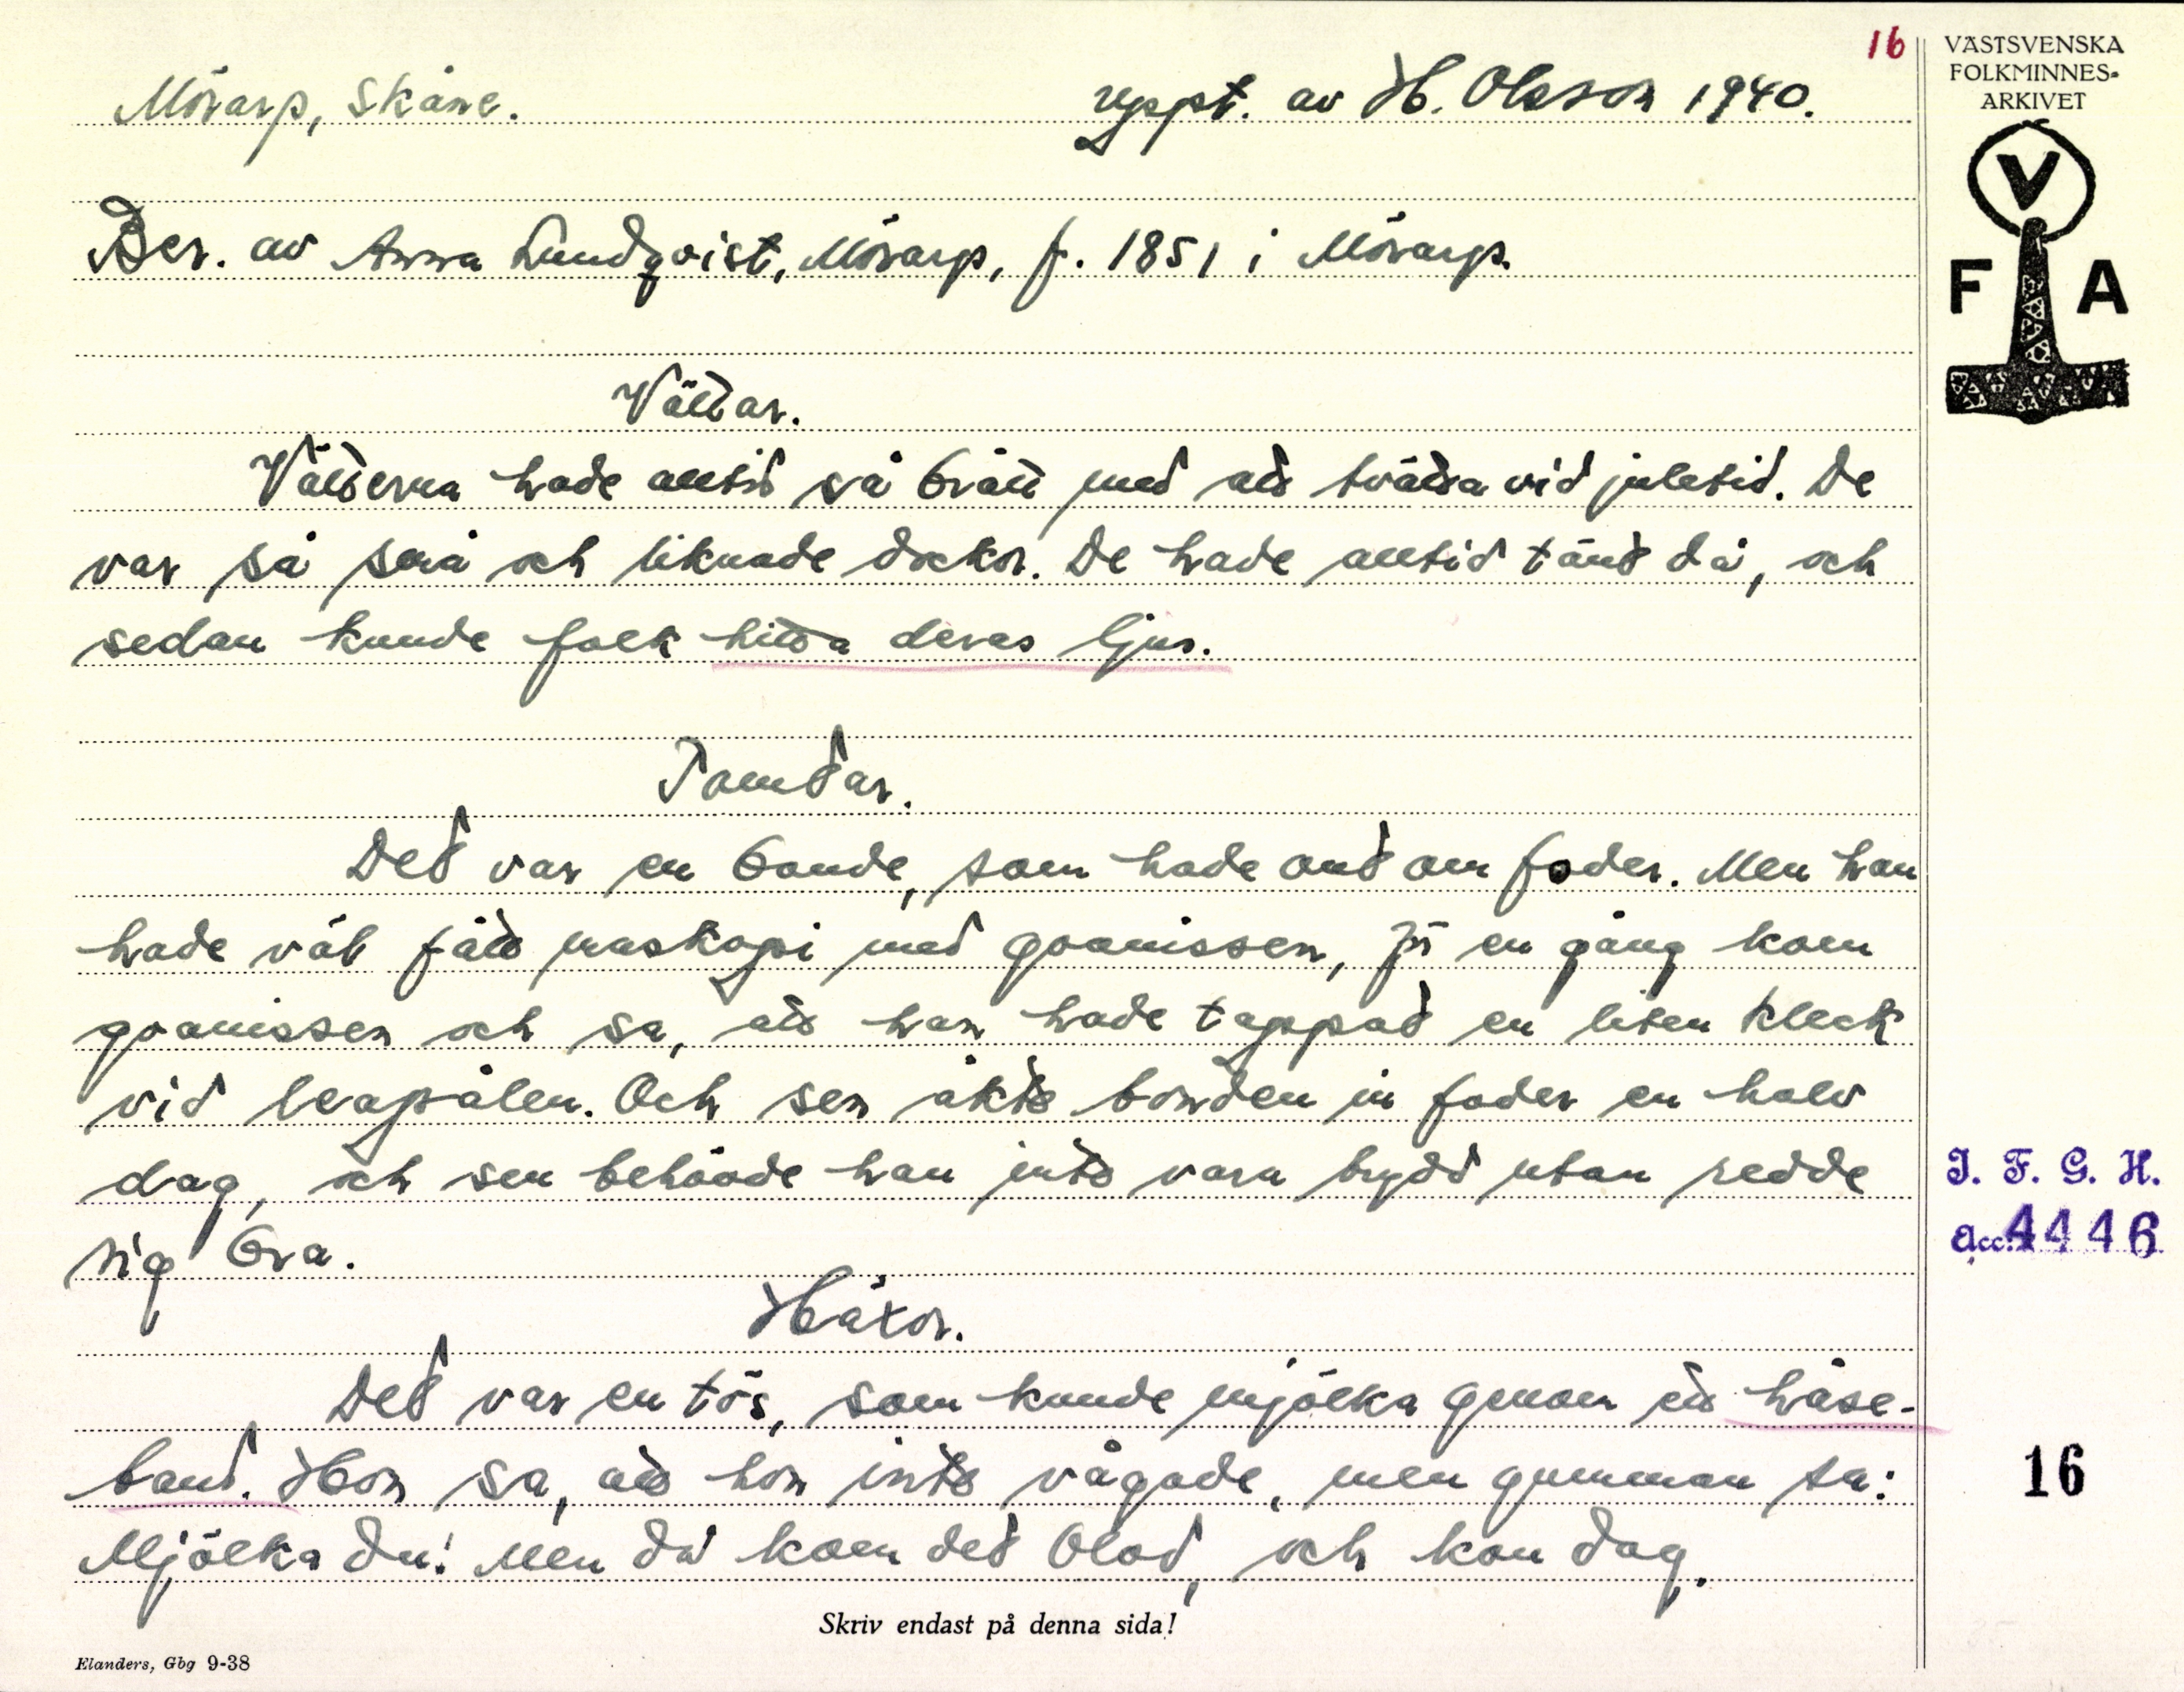 16
VÄSTSVENSKA
FOLKMINNES-
ARKIVET
V
F A
Mörarp, Skåne.
Uppt. av H. Olsson 1940.
Ber. av Anna Lundqvist, Mörarp, f. 1851 i Mörarp.
Vättar.
Vätterna hade alltid så brått med att tvätta vid juletid. De
var så små och liknade dockor. De hade alltid tänt då, och
sedan kunde folk hitta deras ljus.
Tomtar.
Det var en bonde, som hade ont om foder. Men han
hade väl fått maskopi med goanissen, för en gång kom
goanissen och sa, att han hade tappat en liten kleck
vid leapålen. Och sen åkte bonden in foder en halv
dag, och sen behövde han inte vara brydd utan redde
sig bra.
Häxor.
Det var en tös, som kunde mjölka genom ett håse-
band. Hon sa, att hon inte vågade, men gumman sa:
Mjölka du! Men då kom det blod, och kon dog.
J. F. G. H.
Acc. 4446
16
Skriv endast på denna sida!
Elanders, Gbg 9-38